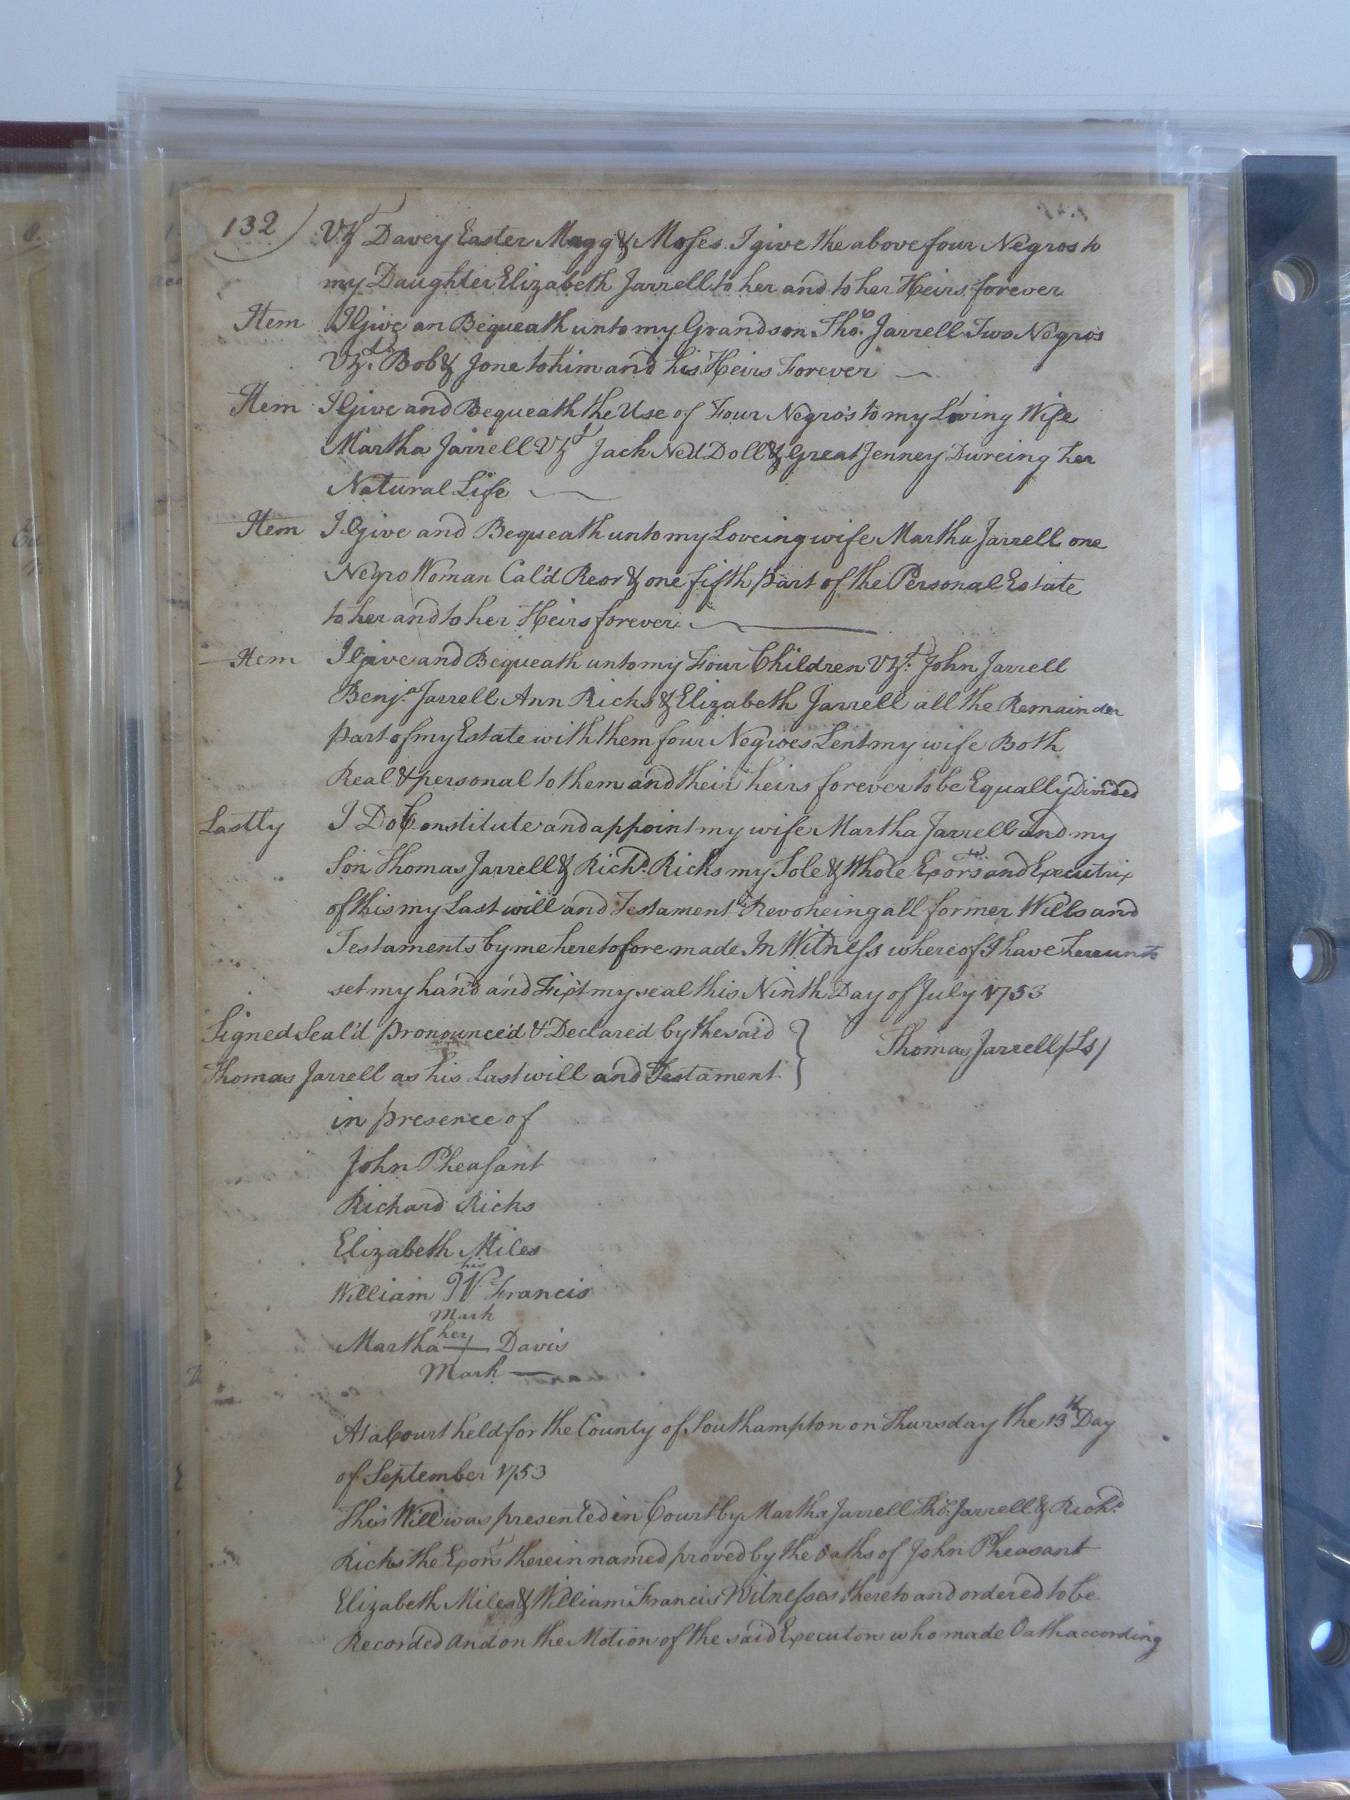 132) Vizt Davey Easter Magg & Moses. I give the above four Negros to
my Daughter Elizabeth Jarrell to her and to her Heirs forever
Item I Give an Bequeath unto my Grandson Tho.s Jarrell Two Negros
Vizt. Bob & Jone to him and his Heirs Forever
Item I Give and Bequeath the Use of Four Negro's to my Loving Wife
Martha Jarrell Vizt Jack Ned Doll & Great Jenney Dureing her
Natural Life
Item I Give and Bequeath unto my Loveing wife Martha Jarrell one
Negro Woman Cal'd Reor & one fifth part of the Personal Estate
to her and to her Heirs forever.
Item I Give and Bequeath unto my Four Children Vizt. John Jarrell
Benj.a Jarrell Ann Ricks & Elizabeth Jarrell all the Remainder
part of my Estate with them four Negroes Lent my wife Both
Real & personal to them and their heirs forever to be Equally Divided
Lastly I Do Constitute and appoint my wife Martha Jarrell and my
Son Thomas Jarrell & Richd. Ricks my Sole & Whole Exors and Executrix
of this my Last will and Testament Revokeing all former Wills and
Testaments by me heretofore made In Witness whereof I have hereunto
set my hand and Fixt my seal this Ninth Day of July 1753
Signed Seal'd pronounced & Declared by the said
Thomas Jarrell (Ls)
Thomas Jarrell as his last will and Testament
in presence of
John Pheasant
Richard Ricks
Elizabeth Miles
his
William W Francis
Mark
her
Martha + Davis
Mark
At a Court held for the County of Southampton on Thursday the 13th Day
of September 1753
This Will was presented in Court by Martha Jarrell Tho.s Jarrell & Richd.
Ricks the Exors therein named proved by the Oaths of John Pheasant
Elizabeth Miles & William Francis Witnesses thereto and ordered to be
Recorded and on the Motion of the said Executors who made Oath according